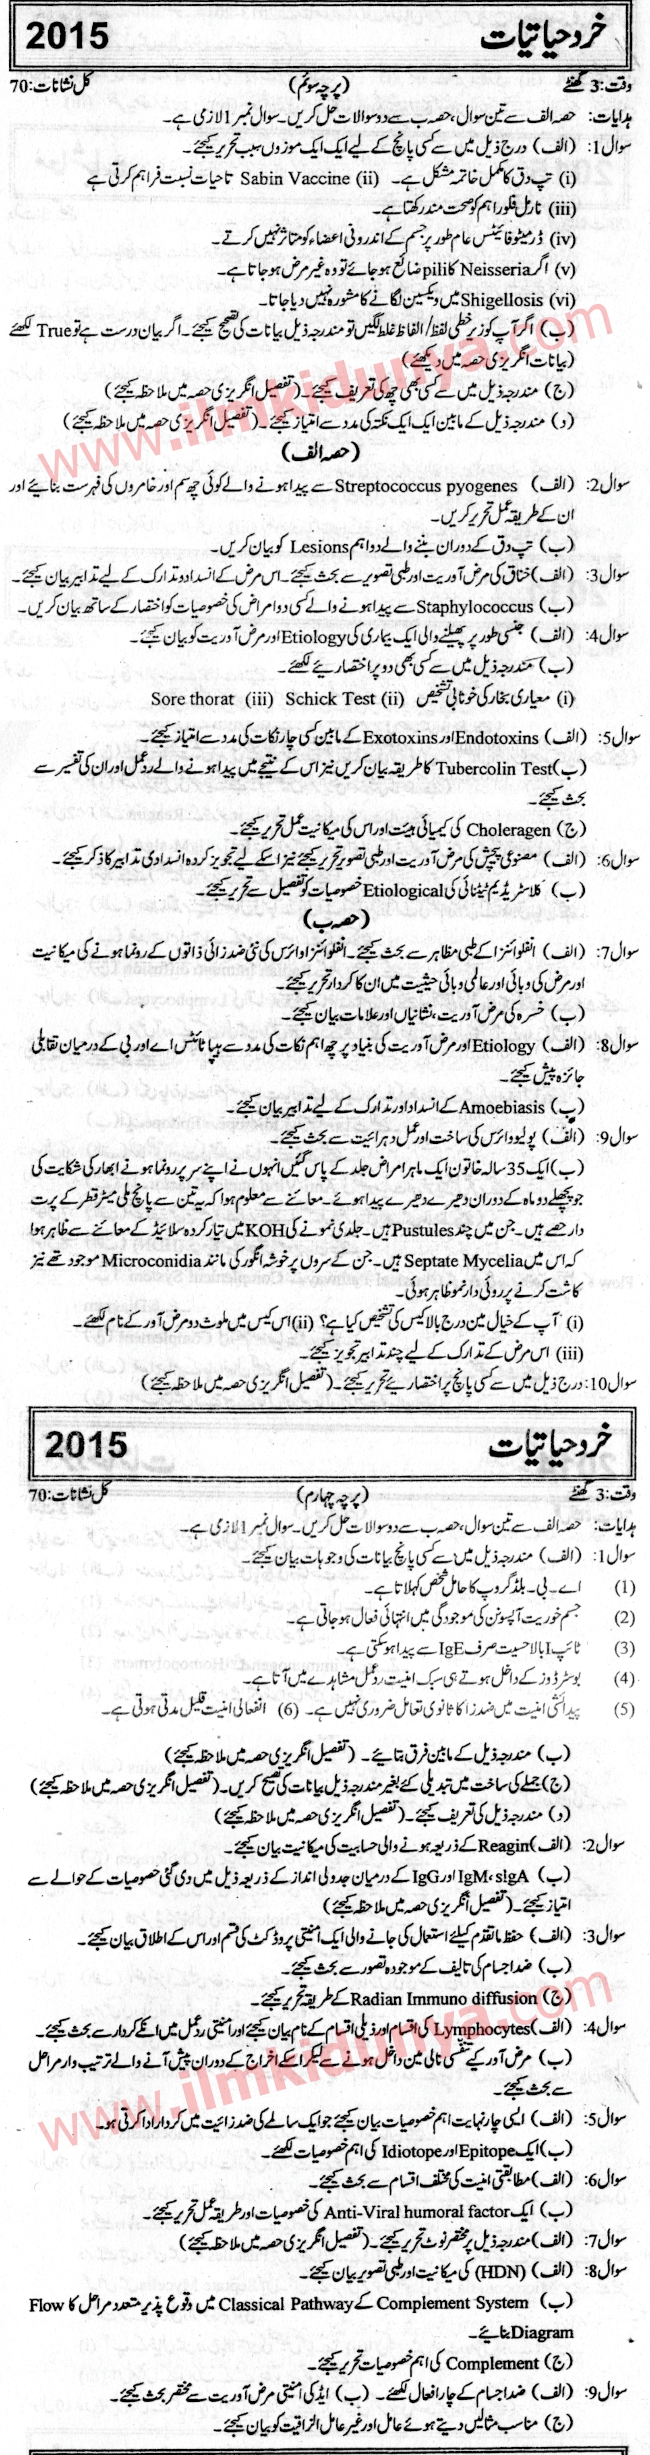 خردحیاتیات 2015
وقت: 3 گھنٹے (پرچہ سوئم) کل نشانات: 70
ہدایات: حصہ الف سے تین سوال، حصہ ب سے دو سوالات حل کریں۔ سوال نمبر 1 لازمی ہے۔
سوال 1: (الف) درج ذیل میں سے کسی پانچ کے لیے ایک ایک موزوں سبب تحریر کیجئے۔
(i) تپ دق کا مکمل خاتمہ مشکل ہے۔ (ii) Sabin Vaccine تا حیات نسبت فراہم کرتی ہے
(iii) نارمل فلورا ہم کو صحت مند رکھتا ہے۔
(iv) ڈرمیٹوفائیٹس عام طور پر جسم کے اندرونی اعضاء کو متاثر نہیں کرتے۔
(v) اگر Neisseria کا pili ضائع ہو جائے تو وہ غیر مرض ہو جاتا ہے۔
(vi) Shigellosis میں ویکسین لگانے کا مشورہ نہیں دیا جاتا۔
(ب) اگر آپ کو زیر خطی لفظ/الفاظ غلط لگیں تو مندرجہ ذیل بیانات کی تصحیح کیجئے۔ اگر بیان درست ہے تو True لکھئے
(بیانات انگریزی حصہ میں دیکھئے)
(ج) مندرجہ ذیل میں سے کسی بھی چھ کی تعریف کیجئے۔ (تفصیل انگریزی حصہ میں ملاحظہ کیجئے)
(د) مندرجہ ذیل کے مابین ایک ایک نکتہ کی مدد سے امتیاز کیجئے۔ (تفصیل انگریزی حصہ میں ملاحظہ کیجئے)
(حصہ الف)
سوال 2: (الف) Streptococcus pyogenes سے پیدا ہونے والے کوئی چھ سم اور خامروں کی فہرست بنائیے اور
ان کے طریقہ عمل تحریر کریں۔
(ب) تپ دق کے دوران بننے والے دو اہم Lesions کو بیان کریں۔
سوال 3: (الف) خناق کی مرض آوریت اور طبی تصویر سے بحث کیجئے۔ اس مرض کے انسداد و تدارک کے لیے تدابیر بیان کیجئے۔
(ب) Staphylococcus سے پیدا ہونے والے کسی دو امراض کی خصوصیات کو اختصار کے ساتھ بیان کریں۔
سوال 4: (الف) جنسی طور پر پھیلنے والی ایک بیماری کی Etiology اور مرض آوریت کو بیان کیجئے۔
(ب) مندرجہ ذیل میں سے کسی بھی دو پر اختصاریے لکھئے۔
(i) معیاری بخار کی خونابی تشخیص (ii) Schick Test (iii) Sore thorat
سوال 5: (الف) Endotoxins اور Exotoxins کے مابین کسی چار نکات کی مدد سے امتیاز کیجئے۔
(ب) Tubercolin Test کا طریقہ بیان کریں نیز اس کے نتیجے میں پیدا ہونے والے ردعمل اور ان کی تفسیر سے
بحث کیجئے۔
(ج) Choleragen کی کیمیائی ہیئت اور اس کی میکانیت عمل تحریر کیجئے۔
سوال 6: (الف) مصنوعی پیچش کی مرض آوریت اور طبی تصویر تحریر کیجئے نیز اس کے لیے تجویز کردہ انسدادی تدابیر کا ذکر کیجئے۔
(ب) کلاسٹریڈیم ٹیٹنائی کی Etiological خصوصیات کو تفصیل سے تحریر کیجئے۔
(حصہ ب)
سوال 7: (الف) انفلوائنزا کے طبی مظاہر سے بحث کیجئے۔ انفلوائنزا وائرس کی نئی ضد زائی ذاتوں کے رونما ہونے کی میکانیت
اور مرض کی وبائی اور عالمی وبائی حیثیت میں ان کا کردار تحریر کیجئے۔
(ب) خسرہ کی مرض آوریت، نشانیاں اور علامات بیان کیجئے۔
سوال 8: (الف) Etiology اور مرض آوریت کی بنیاد پر چھ اہم نکات کی مدد سے ہیپاٹائٹس اے اور بی کے درمیان تقابلی
جائزہ پیش کیجئے۔
(ب) Amoebiasis کے انسداد اور تدارک کے لیے تدابیر بیان کیجئے۔
سوال 9: (الف) پولیو وائرس کی ساخت اور عمل دہرائیت سے بحث کیجئے۔
(ب) ایک 35 سالہ خاتون ایک ماہر امراض جلد کے پاس گئیں انہوں نے اپنے سر پر رونما ہونے ابھار کی شکایت کی
جو پچھلے دو ماہ کے دوران دھیرے دھیرے پیدا ہوئے۔ معائنے سے معلوم ہوا کہ یہ تین سے پانچ ملی میٹر قطر کے پرت
دار حصے ہیں۔ جن میں چند Pustules ہیں۔ جلدی نمونے کی KOH میں تیار کردہ سلائیڈ کے معائنے سے ظاہر ہوا
کہ اس میں Septate Mycelia ہیں۔ جن کے سروں پر خوشہ انگور کی مانند Microconidia موجود تھے نیز
کاشت کرنے پر روئی دار نمو ظاہر ہوئی۔
(i) آپ کے خیال میں درج بالا کیس کی تشخیص کیا ہے؟ (ii) اس کیس میں ملوث دو مرض آور کے نام لکھئے۔
(iii) اس مرض کے تدارک کے لیے چند تدابیر تجویز کیجئے۔
سوال 10: درج ذیل میں سے کسی پانچ پر اختصاریے تحریر کیجئے۔ (تفصیل انگریزی حصہ میں ملاحظہ کیجئے)
خردحیاتیات 2015
وقت: 3 گھنٹے (پرچہ چہارم) کل نشانات: 70
ہدایات: حصہ الف سے تین سوال، حصہ ب سے دو سوالات حل کریں۔ سوال نمبر 1 لازمی ہے۔
سوال 1: (الف) مندرجہ ذیل میں سے کسی پانچ بیانات کی وجوہات بیان کیجئے۔
(1) اے۔ بی۔ بلڈ گروپ کا حامل شخص کہلاتا ہے۔
(2) جسم خوریت آپسونن کی موجودگی میں انتہائی فعال ہو جاتی ہے۔
(3) ٹائپ I بالا حسیت صرف IgE سے پیدا ہو سکتی ہے۔
(4) بوسٹر ڈوز کے داخل ہوتے ہی سبک امنیت ردعمل مشاہدے میں آتا ہے۔
(5) پیدائشی امنیت میں ضد زا کا ثانوی تعامل ضروری نہیں ہے۔ (6) انفعالی امنیت قلیل مدتی ہوتی ہے۔
(ب) مندرجہ ذیل کے مابین فرق بتائیے۔ (تفصیل انگریزی حصہ میں ملاحظہ کیجئے)
(ج) جملے کی ساخت میں تبدیلی کئے بغیر مندرجہ ذیل بیانات کی تصحیح کریں۔ (تفصیل انگریزی حصہ میں ملاحظہ کیجئے)
(د) مندرجہ ذیل کی تعریف کیجئے۔ (تفصیل انگریزی حصہ میں ملاحظہ کیجئے)
سوال 2: (الف) Reagin کے ذریعہ ہونے والی حسابیت کی میکانیت بیان کیجئے۔
(ب) IgM، sIgA اور IgG کے درمیان جدولی انداز کے ذریعہ ذیل میں دی گئی خصوصیات کے حوالے سے
امتیاز کیجئے۔ (تفصیل انگریزی حصہ میں ملاحظہ کیجئے)
سوال 3: (الف) حفظ ماتقدم کیلئے استعمال کی جانے والی ایک امنیتی پروڈکٹ کی قسم اور اس کے اطلاق بیان کیجئے۔
(ب) ضد اجسام کی تالیف کے موجودہ تصور سے بحث کیجئے۔
(ج) Radian Immuno diffusion کے طریقہ تحریر کیجئے۔
سوال 4: (الف) Lymphocytes کی اقسام اور ذیلی اقسام کے نام بیان کیجئے اور امنیتی ردعمل میں انکے کردار سے بحث کیجئے۔
(ب) مرض آور کے تنفسی نالی میں داخل ہونے سے لیکر اسکے اخراج کے دوران پیش آنے والے ترتیب وار مراحل
سے بحث کیجئے۔
سوال 5: (الف) ایسی چار نہایت اہم خصوصیات بیان کیجئے جو ایک سالمے کی ضد زائیت میں کردار ادا کرتی ہو۔
(ب) ایک Epitope اور Idiotope کی اہم خصوصیات لکھئے۔
سوال 6: (الف) مطابقتی امنیت کی مختلف اقسام سے بحث کیجئے۔
(ب) ایک Anti-Viral humoral factor کی خصوصیات اور طریقہ عمل تحریر کیجئے۔
سوال 7: (الف) مندرجہ ذیل پر مختصر نوٹ تحریر کیجئے۔ (تفصیل انگریزی حصہ میں ملاحظہ کیجئے)
سوال 8: (الف) (HDN) کی میکانیت اور طبی تصویر بیان کیجئے۔
(ب) Complement System کے Classical Pathway میں وقوع پذیر متعدد مراحل کا Flow
Diagram بنائیے۔
(ج) Complement کی اہم خصوصیات تحریر کیجئے۔
سوال 9: (الف) ضد اجسام کے چار افعال لکھئے۔ (ب) ایڈ کی امنیتی مرض آوریت سے مختصر بحث کیجئے۔
(ج) مناسب مثالیں دیتے ہوئے عامل اور غیر عامل الزاقیت کو بیان کیجئے۔
www.ilmkidunya.com
www.ilmkidunya.com